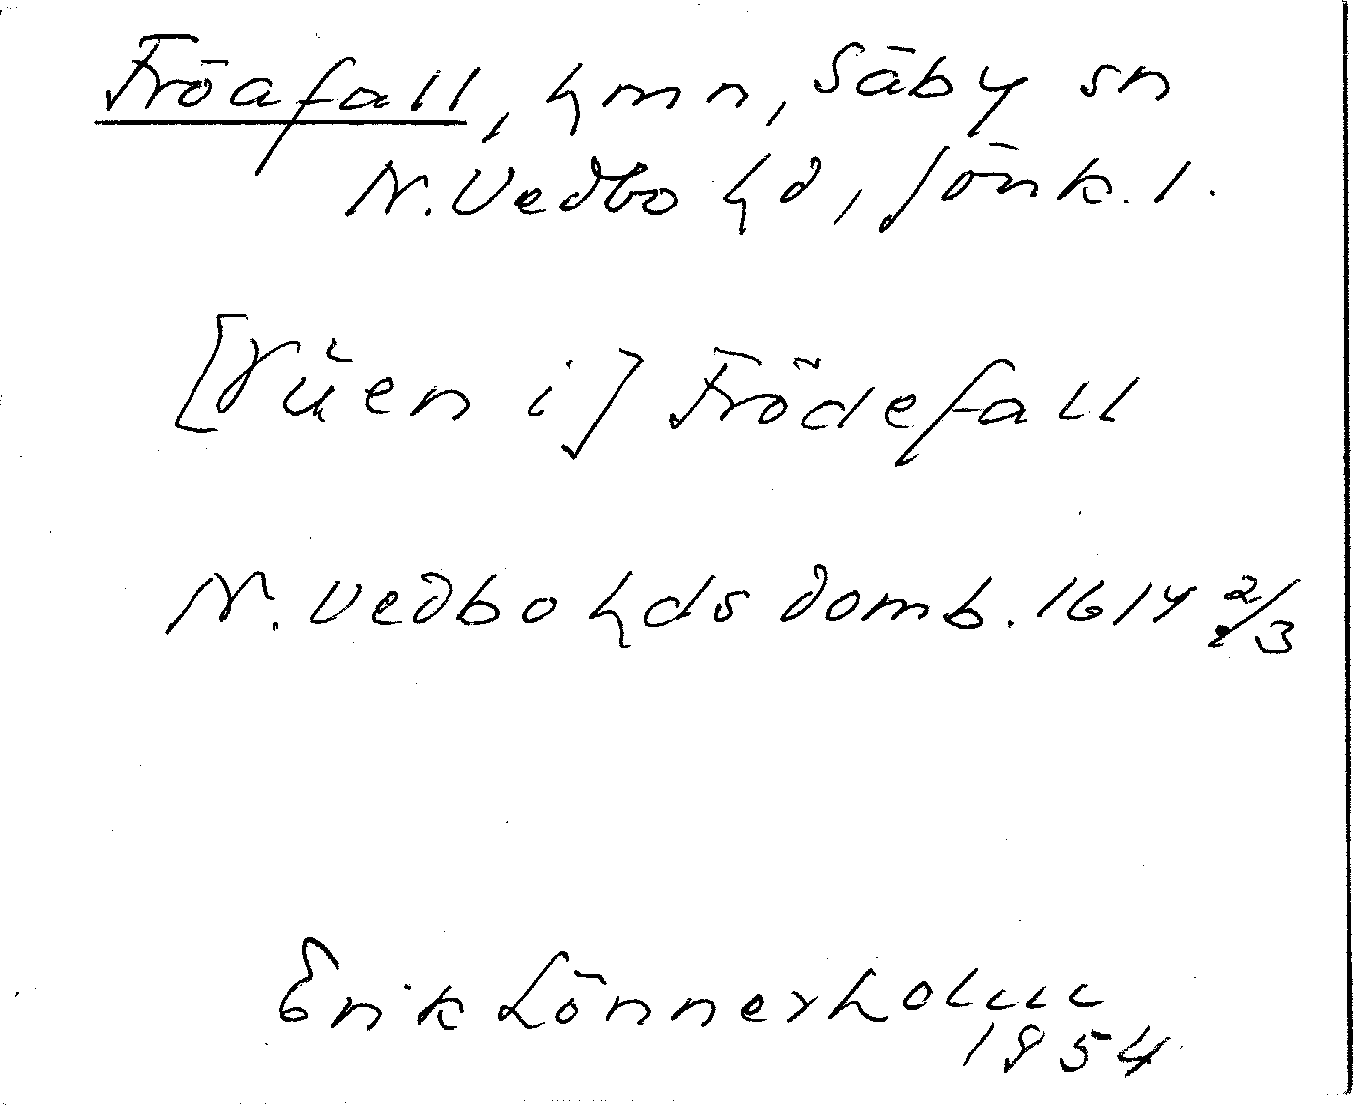 Fröafall, hmn, Säby sn
N. Vedbo hd, Jönk. l.
[Nüen i] Frödefall
N. Vedbo hds domb. 1614 2/3
Erik Lönnerholm
1954